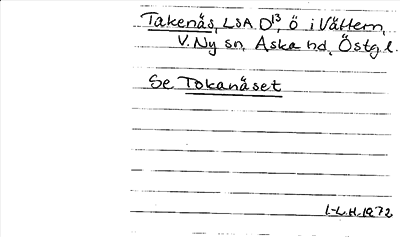 Takenäs, LSA D¹³, ö i Vättern,
V. Ny sn, Aska hd, Östg. l.
Se Tokanäset
I-L.H. 1972